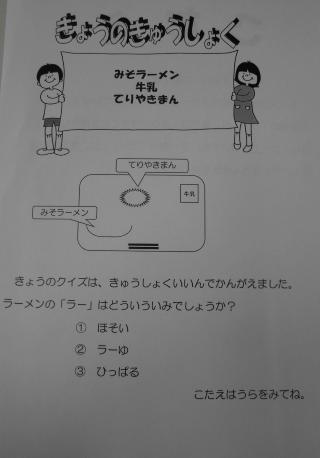 きょうのきゅうしょく
みそラーメン
牛乳
てりやきまん
てりやきまん
牛乳
みそラーメン
きょうのクイズは、きゅうしょくいいんでかんがえました。
ラーメンの「ラー」はどういういみでしょうか？
① ほそい
② ラーゆ
③ ひっぱる
こたえはうらをみてね。